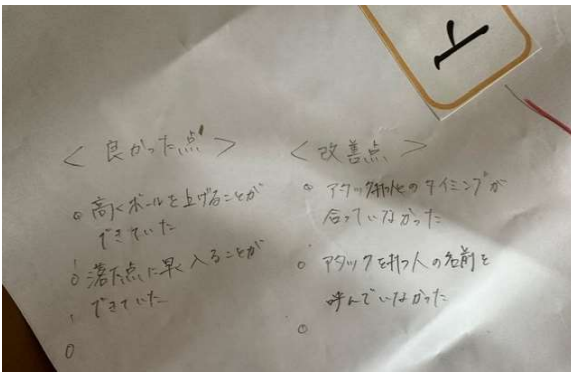 ト
<良かった点>
○ 高くボールを上げることが
できていた
○ 落下点に早く入ることが
できていた
○
<改善点>
○ アタック打つ人とのタイミングが
合っていなかった
○ アタックを打つ人の名前を
呼んでいなかった
○